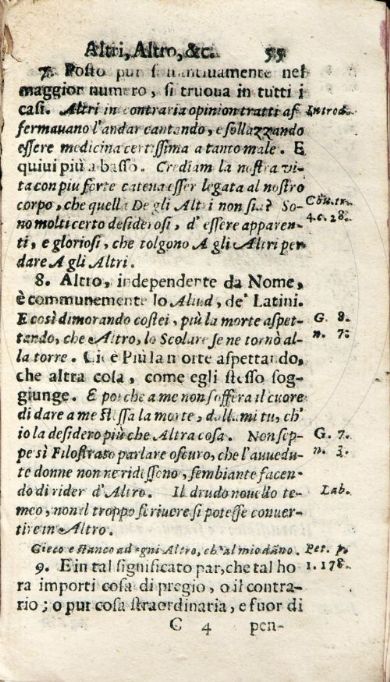 Altri, Altro, &c. 55
7. Posto pur sustantiuamente nel
maggior numero, si truoua in tutti i
casi. Altri in contraria opinion tratti af Introd.
fermauano l'andar cantando, e sollazzando
essere medicina certissima a tanto male. E
quiui più a basso. Crediam la nostra vi-
ta con piu forte catena esser legata al nostro
corpo, che quella De gli Altri non sia? So-
no molti certo desiderosi, d'essere apparen- 4.c.28.
ti, e gloriosi, che tolgono A gli Altri per
dare A gli Altri.
8. Altro, independente da Nome,
è communemente lo Aliud, de' Latini.
E così dimorando costei, più la morte aspet- G. 8.
tando, che Altro, lo Scolare se ne tornò al- n. 7.
la torre. Cioè Più la morte aspettando,
che altra cosa, come egli stesso sog-
giunge. E poiche a me non soffera il cuore
di dare a me stessa la morte, dallami tu, ch'
io la desidero più che Altra cosa. Non sep- G. 7.
pe sì Filostrato parlare oscuro, che l'auuedu- n. 3.
te donne non ne ridesseno, sembiante facen-
do di rider d'Altro. Il drudo nouello te- Lab.
meo, non il troppo scriuere si potesse conuer-
tire in Altro.
Cieco e stanco ad ogni Altro, ch'al mio dãno. Pet. p.
9. E in tal significato par, che tal ho 1.178.
ra importi cosa di pregio, o il contra-
rio; o pur cosa straordinaria, e fuor di
C 4 pen-